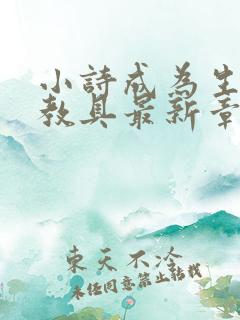 小詩戒為生
教具最新章
東天不冷
未任同意禁止転載